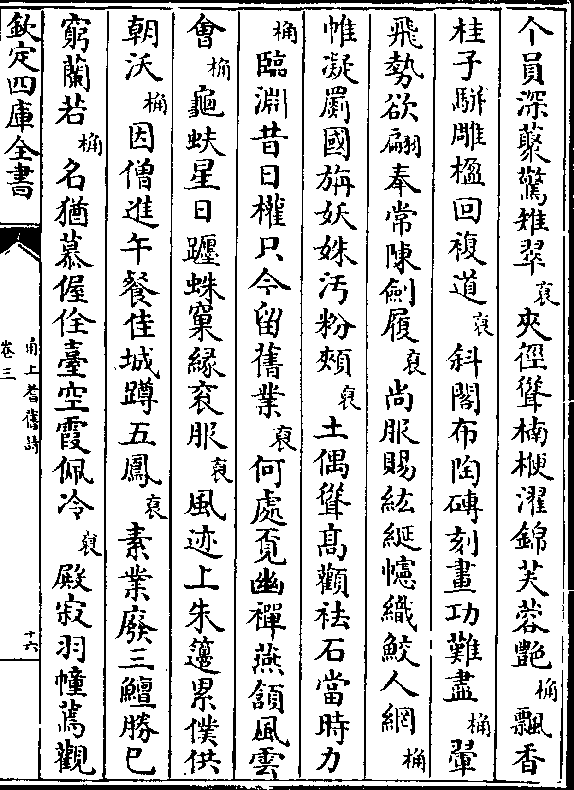 个員深藂驚雉翠袞夾徑聳楠梗濯錦芙蓉艷桷飄香
桂子駢雕楹回複道袞斜閣布陶磚刻畫功難盡桷翬
飛勢欲翩奉常陳劍履袞尚服賜紘綖幰織鮫人網桷
帷凝罽國旃妖姝污粉頰袞土偶聳高顴祛石當時力
桷臨淵昔日權只今留舊業袞何處覓幽禪燕頷風雲
會桷龜蚨星日躔蛛窠緣衮服袞風迹上朱籩累僕供
朝沃桷因僧進午餐佳城蹲五鳳袞素業廢三鱣勝已
窮蘭若桷名猶慕偓佺臺空霞佩冷袞殿寂羽幢蔫觀
欽定四庫全書
甬上耆舊詩
卷三
十六